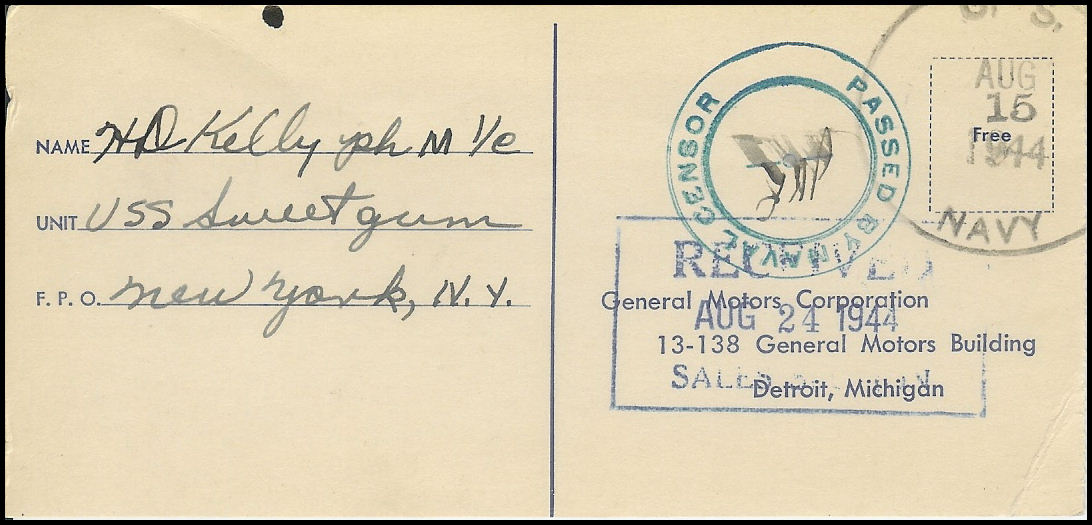 NAME HD Kelly ph M 1/c
UNIT USS Sweetgum
F. P. O. New York, N.Y.
PASSED BY NAVAL CENSOR
U. S.
NAVY
AUG
15
1944
Free
RECEIVED
AUG 24 1944
SALES
General Motors Corporation
13-138 General Motors Building
Detroit, Michigan